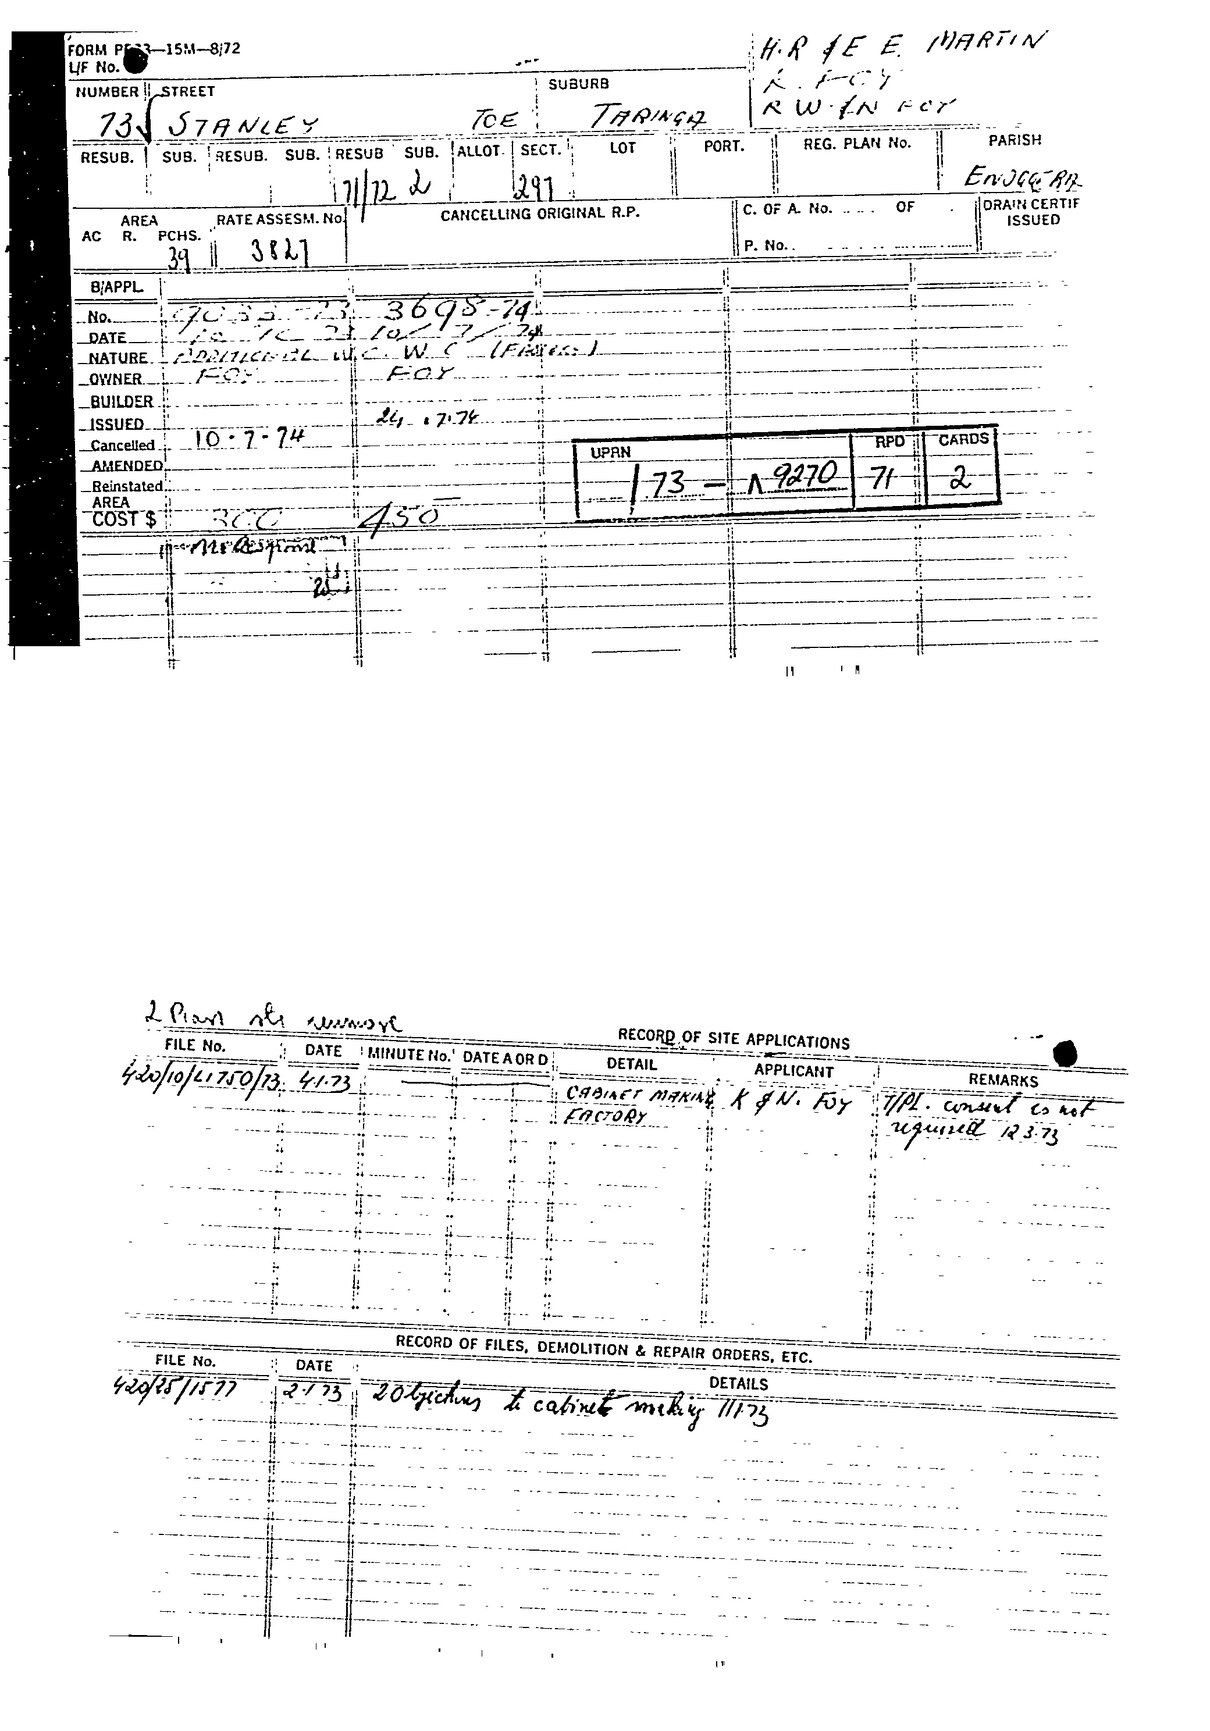 FORM PF 23—15M—8/72
L/F No.
H.R & E E. MARTIN
FOY
R W & N FOY
NUMBER STREET SUBURB
73 STANLEY TCE TARINGA
RESUB. SUB. RESUB. SUB. RESUB SUB. ALLOT. SECT. LOT PORT. REG. PLAN No. PARISH
71/72 2 297 ENOGGERA
AREA RATE ASSESM. No. CANCELLING ORIGINAL R.P. C. OF A. No. OF DRAIN CERTIF
AC R. PCHS. ISSUED
39 3827 P. No.
B/APPL.
No. 3698-74
DATE 10/7/74
NATURE ADDITIONAL W.C. W C
OWNER FOY FOY
BUILDER
ISSUED 24.7.74
Cancelled 10-7-74
AMENDED
Reinstated
AREA
COST $ 300 450
UPRN RPD CARDS
73 - 9270 71 2
No Response
RECORD OF SITE APPLICATIONS
FILE No. DATE MINUTE No. DATE A OR D DETAIL APPLICANT REMARKS
4.1.73 CABINET MAKING K & N. FOY T/Pl. consent is not
FACTORY required 12.3.73
RECORD OF FILES, DEMOLITION & REPAIR ORDERS, ETC.
FILE No. DATE DETAILS
420/25/1577 2.1.73 2 Objections to cabinet making